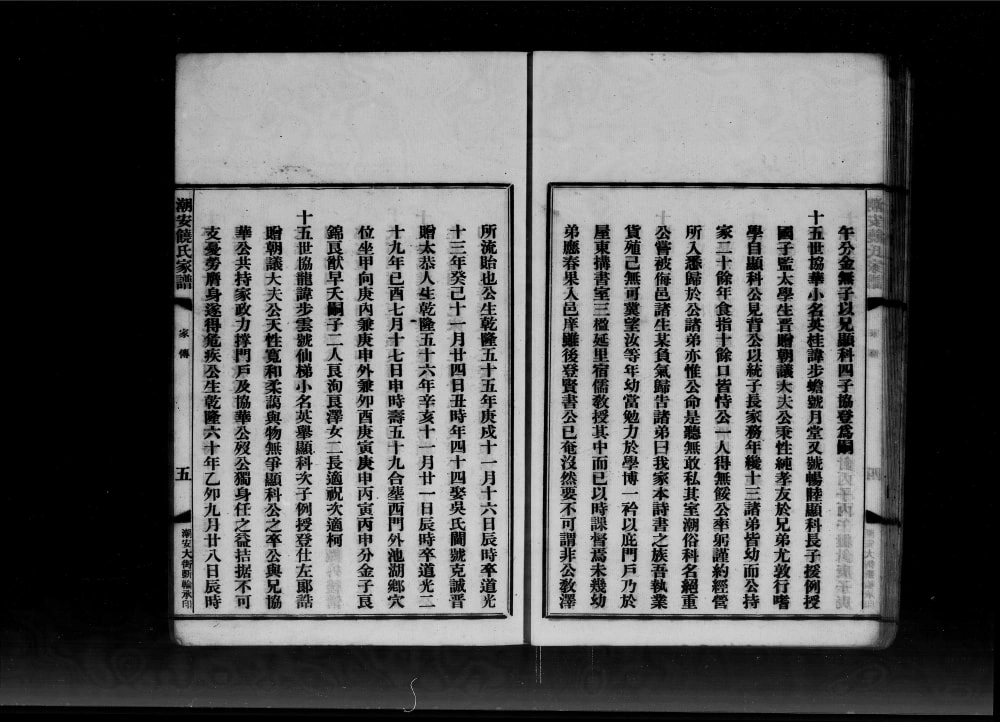 午分金無子以兄顯科四子協登爲嗣
十五世協華小名英桂諱步蟾號月堂又號暢睦顯科長子援例授
國子監太學生晋贈朝議大夫公秉性純孝友於兄弟尤敦行嗜
學自顯科公見背公以統子長家務年纔十三諸弟皆幼而公持
家二十餘年食指十餘口皆恃公一人得無餒公率躬謹約經營
所入悉歸於公諸弟亦惟公命是聽無敢私其室潮俗科名絕重
公嘗被侮邑諸生某負氣歸告諸弟曰我家本詩書之族吾執業
貨殖己無可冀望汝等年幼當勉力於學博一衿以庇門戶乃於
屋東搆書室三楹延里宿儒教授其中而已以時課督焉未幾幼
弟應春果入邑庠雖後登賢書公已奄沒然要不可謂非公教澤
所流貽也公生乾隆五十五年庚戌十一月十六日辰時卒道光
十三年癸己十一月廿四日丑時年四十四娶吳氏閫號克誠晋
贈太恭人生乾隆五十六年辛亥十一月廿一日辰時卒道光二
十九年已酉七月十七日申時壽五十九合塟西門外池湖鄉穴
位坐甲向庚內兼庚申外兼卯酉庚寅庚申丙寅丙申分金子良
錦良猷早夭嗣子二人良洵良澤女二長適祝次適柯
十五世協龍諱步雲號仙梯小名英舉顯科次子例授登仕左郞誥
贈朝議大夫公天性寬和柔謁與物無爭顯科公之卒公與兄協
華公共持家政力撐門戶及協華公歿公獨身任之益拮据不可
支憂勞癠身遂得危疾公生乾隆六十年乙卯九月廿八日辰時
潮安饒氏家譜
家傳
五
潮安大街新輪承印